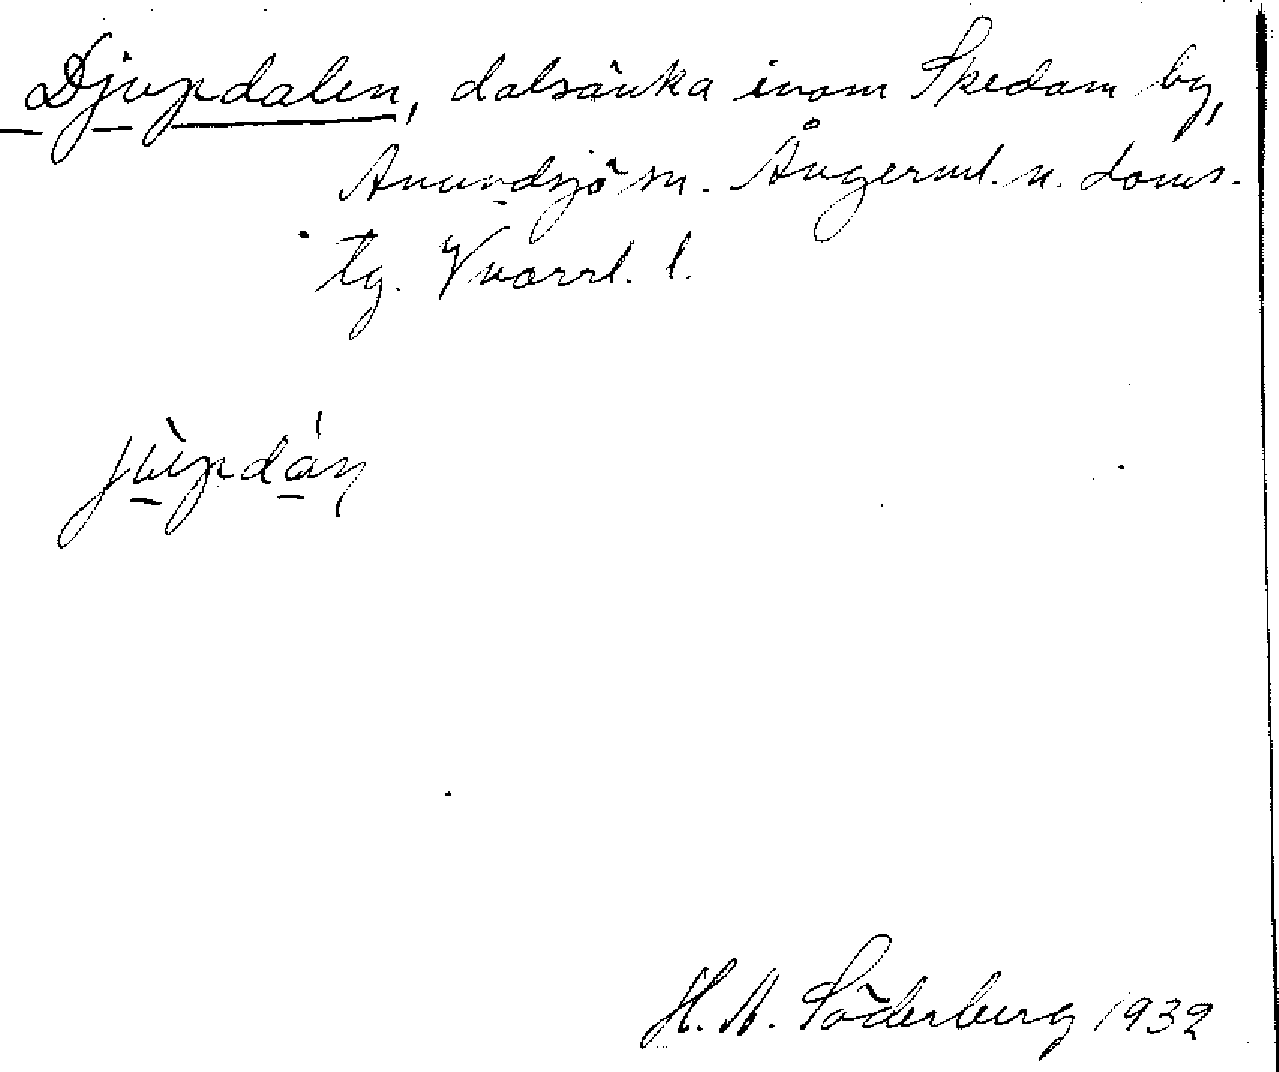 Djupdalen, dalsänka inom Skedom by,
Anundsjö sn. Ångerml. n. doms.
tg. Vnorrl. l.
jùpdán
H. A. Söderberg 1932